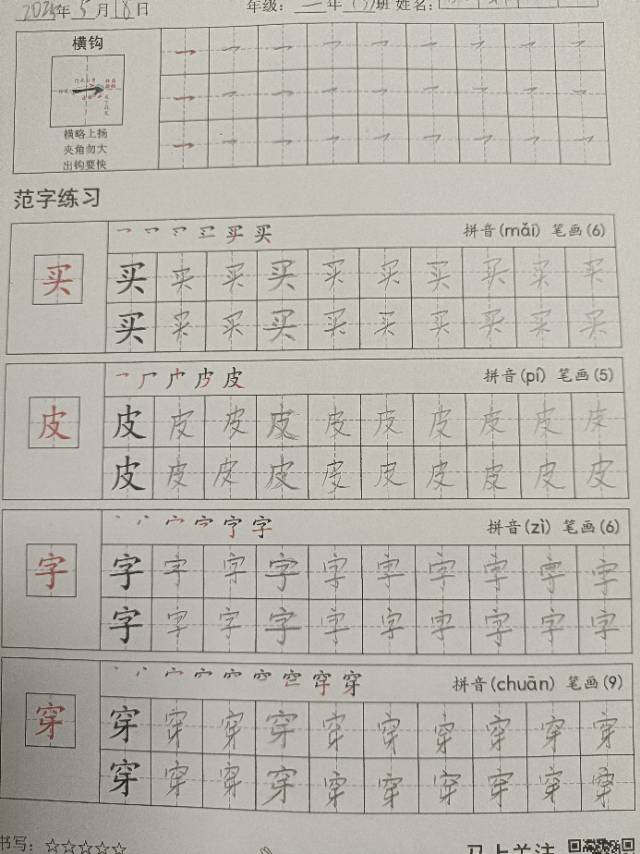 年5月18日 年级：一年(3)班 姓名：
横钩
横略上扬
夹角勿大
出钩要快
范字练习
买 拼音(mǎi) 笔画(6)
买 买 买 买 买 买 买 买 买 买 买
买 买 买 买 买 买 买 买 买 买
皮 拼音(pí) 笔画(5)
皮 皮 皮 皮 皮 皮 皮 皮 皮 皮 皮
皮 皮 皮 皮 皮 皮 皮 皮 皮 皮
字 拼音(zì) 笔画(6)
字 字 字 字 字 字 字 字 字 字 字
字 字 字 字 字 字 字 字 字 字
穿 拼音(chuān) 笔画(9)
穿 穿 穿 穿 穿 穿 穿 穿 穿 穿 穿
穿 穿 穿 穿 穿 穿 穿 穿 穿 穿
书写：☆☆☆☆☆ 马上关注